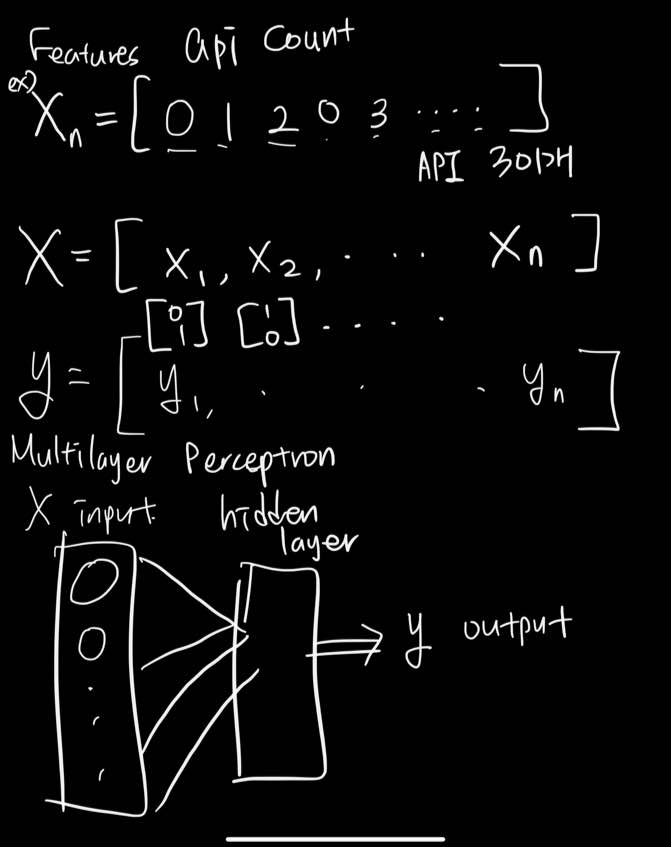 Features api count
ex) Xn = [ 0 1 2 0 3 ..... ]
API 30개
X = [ x1, x2, . . . xn ]
[0 1] [1 0] . . . .
y = [ y1, . . . yn ]
Multilayer Perceptron
X input hidden
layer
y output